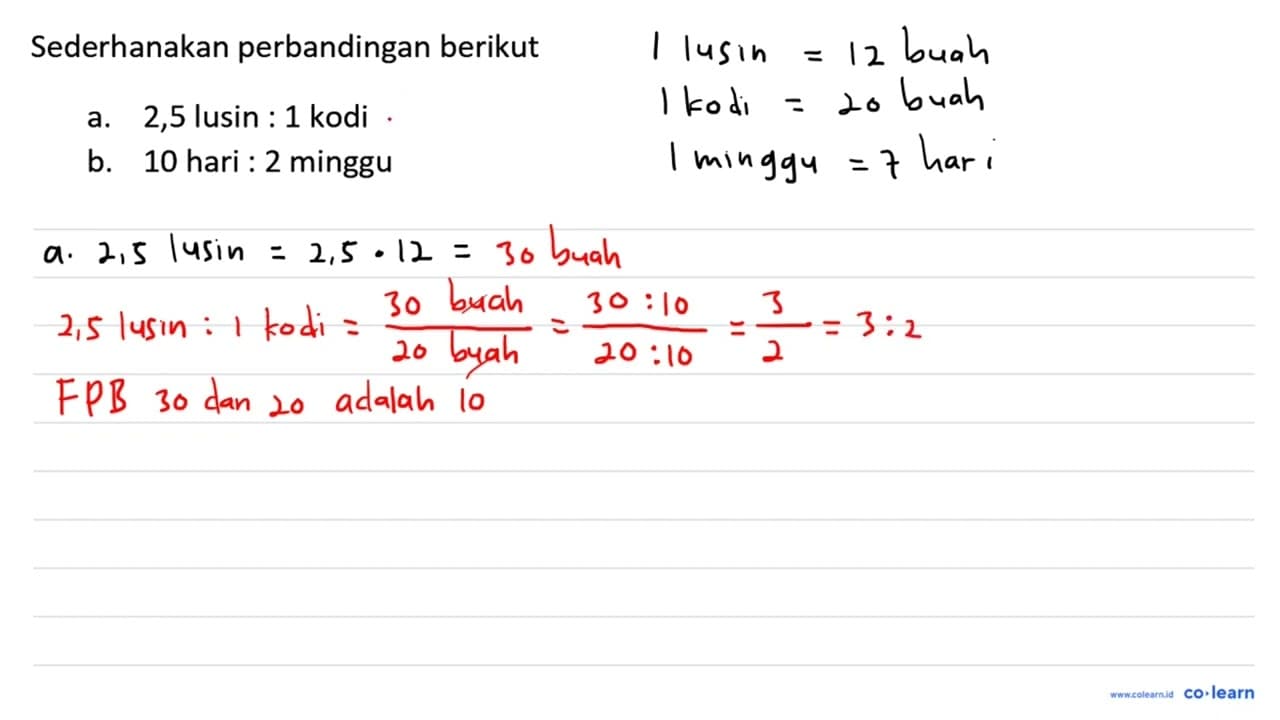 Sederhanakan perbandingan berikut
a. 2,5 lusin : 1 kodi
b. 10 hari : 2 minggu
1 lusin = 12 buah
1 kodi = 20 buah
1 minggu = 7 hari
a. 2,5 lusin = 2,5 • 12 = 30 buah
2,5 lusin : 1 kodi = 30 buah / 20 buah = 30 : 10 / 20 : 10 = 3 / 2 = 3 : 2
FPB 30 dan 20 adalah 10
www.colearn.id co·learn